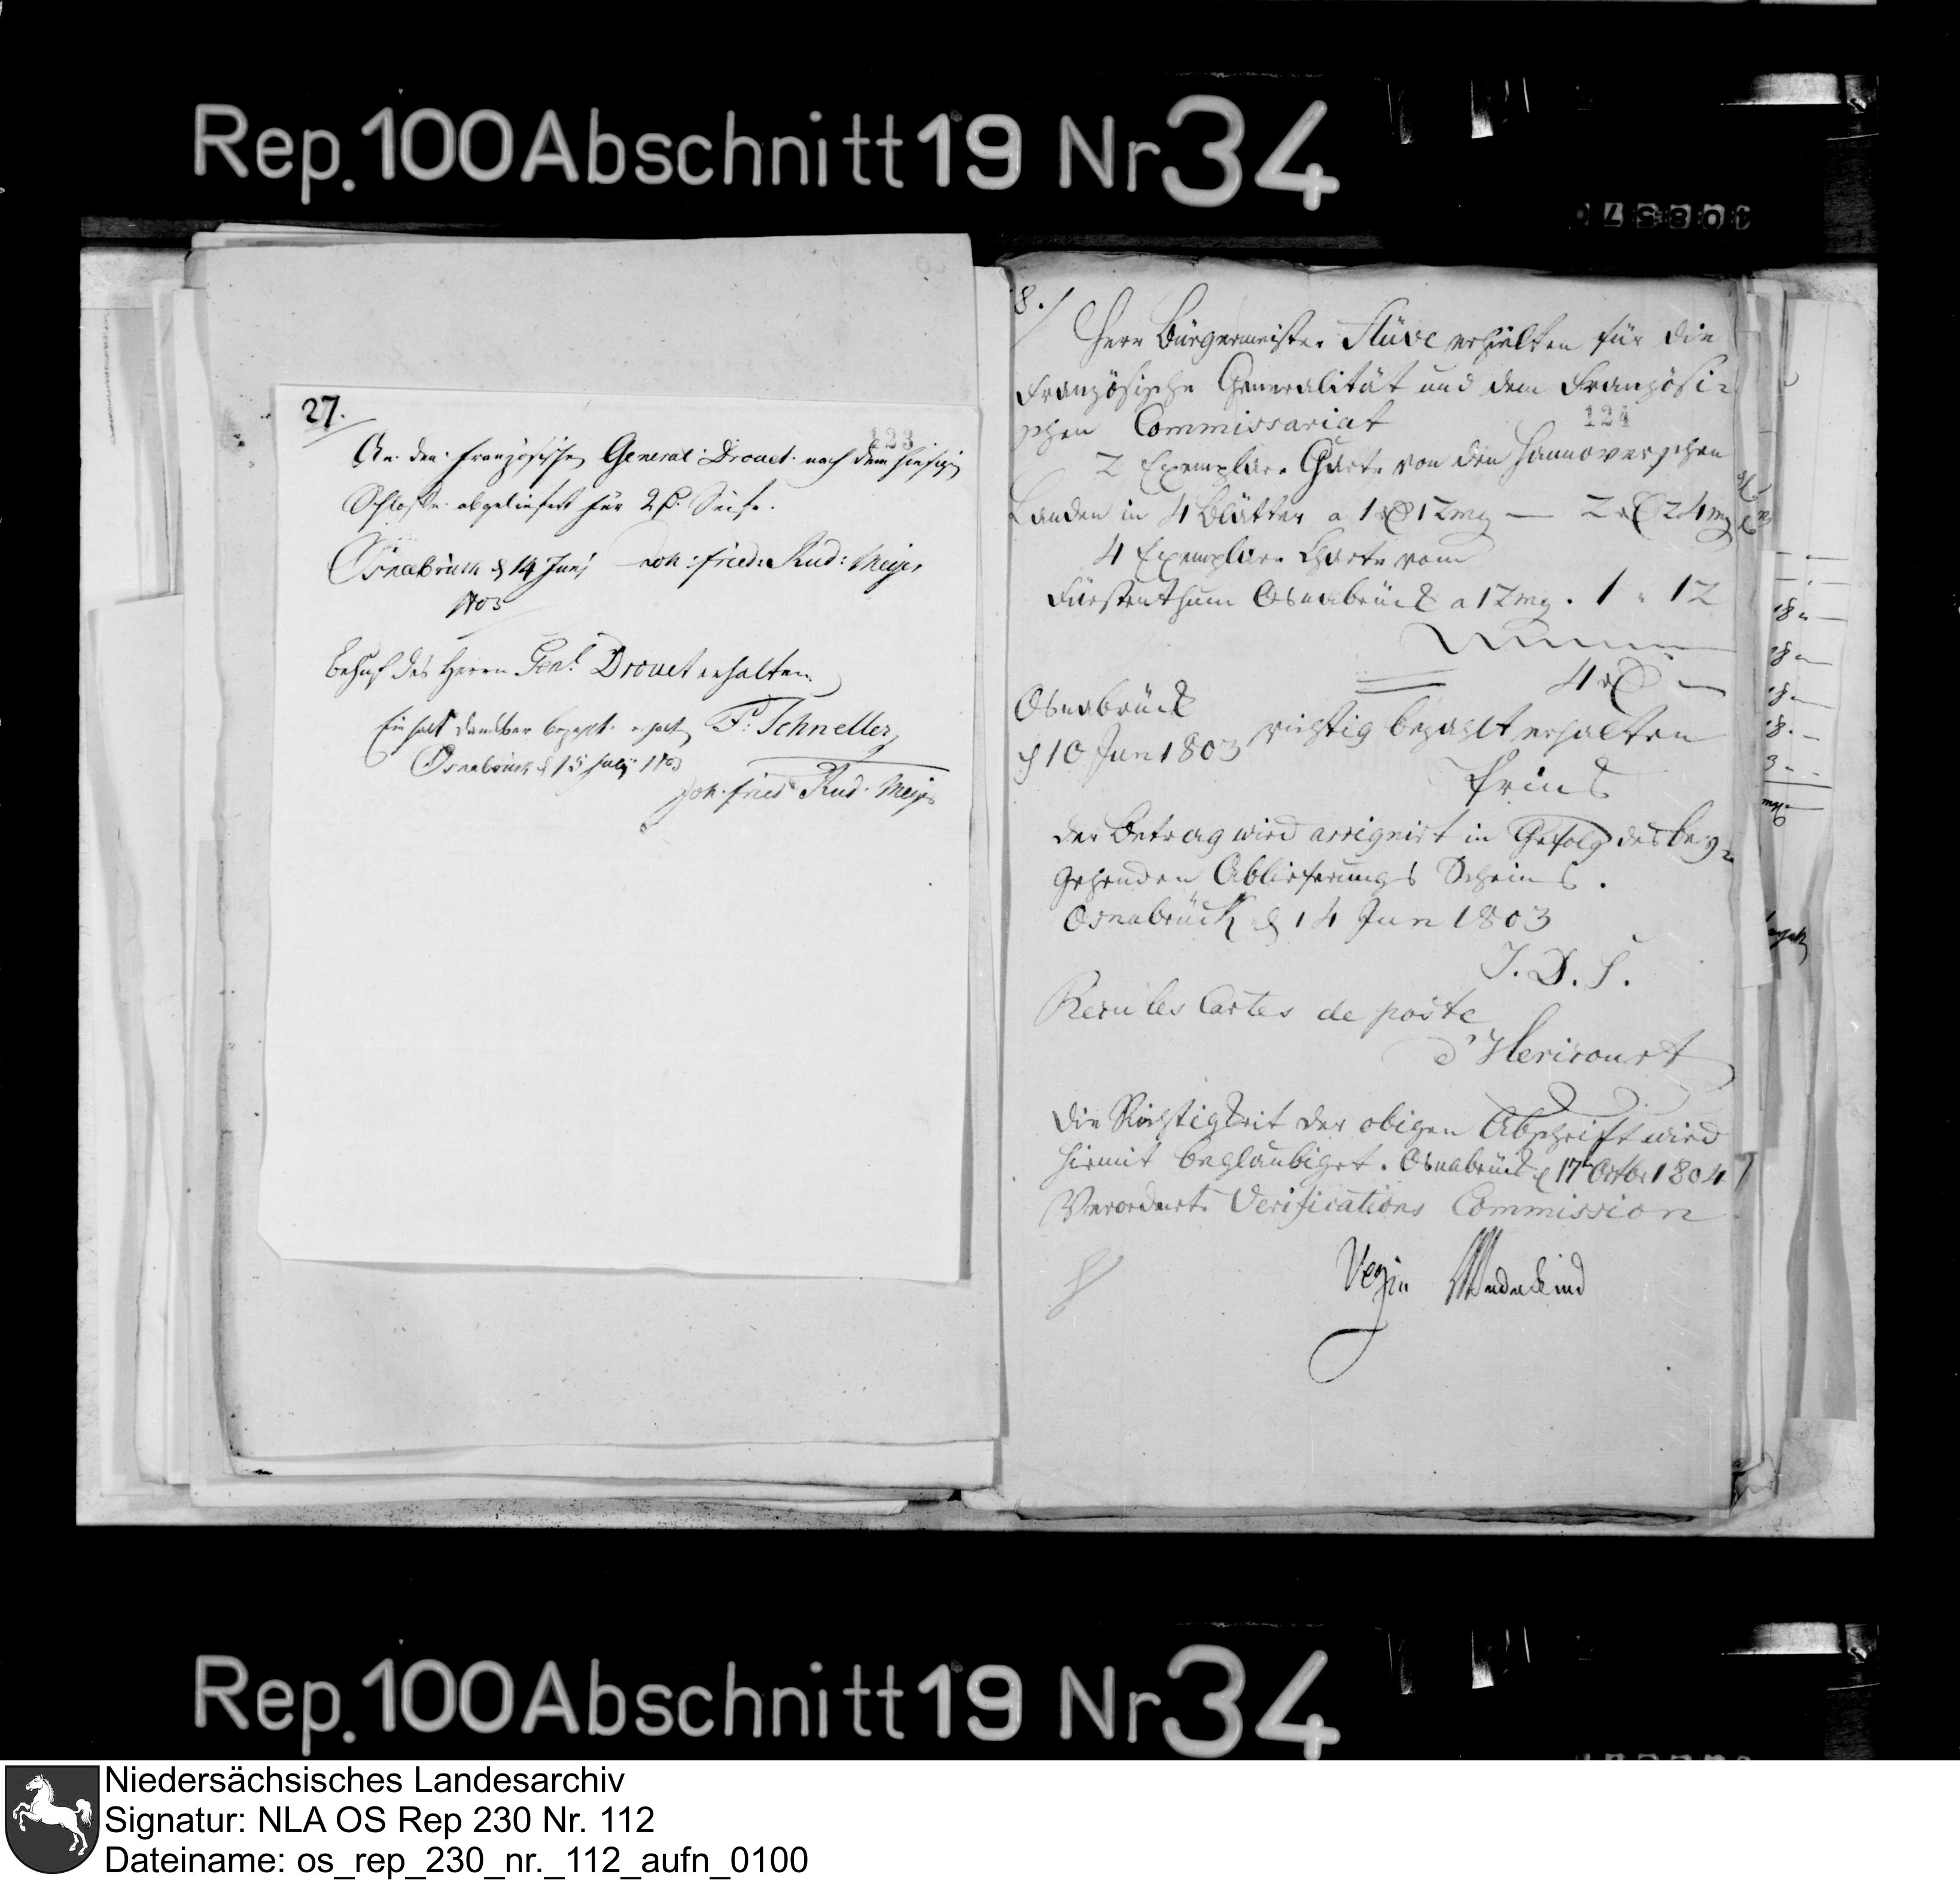 Rep. 100 Abschnitt 19 Nr 34
27.
123
An den französischen General Drouet nach dem hiesigen
Schloße abgeliefert für 2 ß. Seife.
Osnabrück d 14 Junj Joh: Fried: Rud: Meyer
1803
Behuf des Herrn Genl Drouet erhalten.
F. Schneller
Osnabrück d 15 July 1803
Joh. Fried Rud. Meyer
8./
Herr Bürgermeister Stüve erhielten für die
Französische Generalität und dem Französi=
schen Commissariat
124
2 Exemplare Charte von den Hannoverschen
Landen in 4 Blätter a 1 rß 12 mg — 2 rß 24 mg
4 Exemplare Charte vom
Fürstenthum Osnabrück a 12 mg . 1 " 12
4 rß —
Osnabrück
d 10 Jun 1803 richtig bezahlt erhalten
Prins
Der Betrag wird assignirt in Gefolg des bey=
gehenden Ablieferungs Scheins.
Osnabrück d 14 Jun 1803
J. D. S.
Recu les Cartes de poste
d'Hericourt
Die Richtigkeit der obigen Abschrift wird
hiermit beglaubiget. Osnabrück d 17ten Octbr 1804
Verordnete Verifications Commission
Vezin Wedekind
Rep. 100 Abschnitt 19 Nr 34
Niedersächsisches Landesarchiv
Signatur: NLA OS Rep 230 Nr. 112
Dateiname: os_rep_230_nr._112_aufn_0100